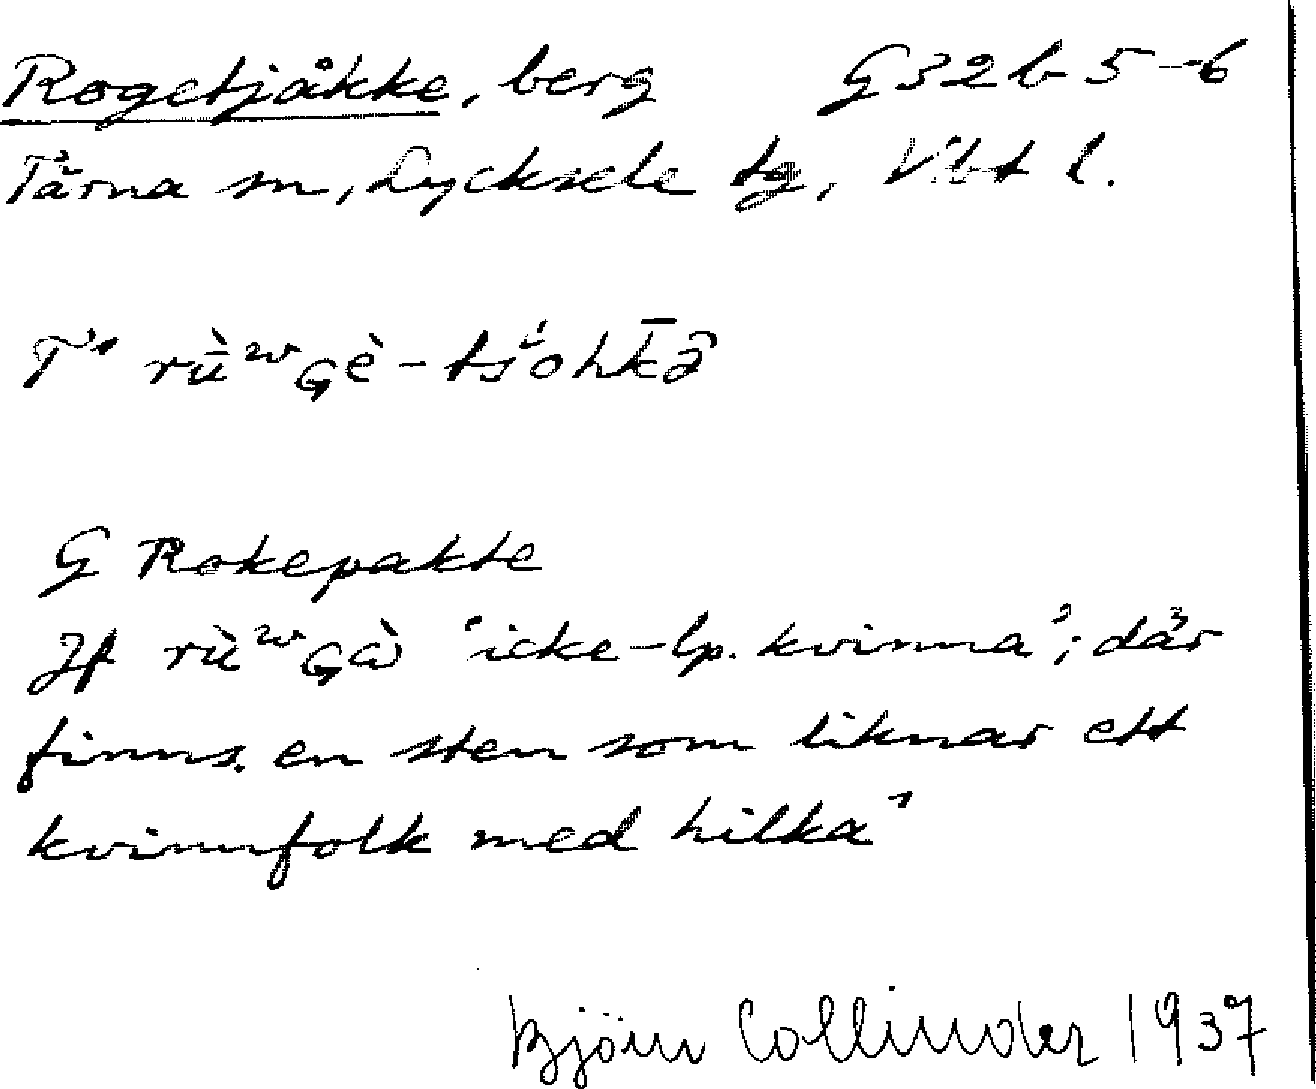 Rogetjåkke, berg G32b 5-6
Tärna sn, Lycksele tg, Vbt l.
G Rokepakte
Jf rù̄ʷɢὰ 'icke-lp. kvinna'; där
finns en sten som liknar ett
kvinnfolk med hilka"
Björn Collinder 1937